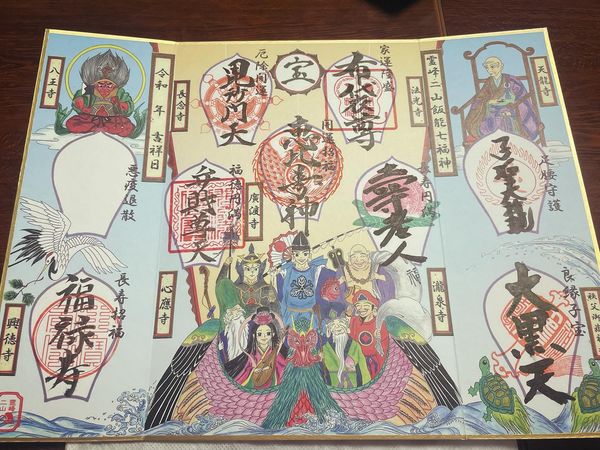 天龍寺
足腰守護
良縁子宝
大黒天
霊峰二山飯能七福神
家運隆盛
布袋尊
法光寺
長寿円満
寿老人
福
瀧泉寺
宝
開運招福
恵比寿神
厄除開運
毘沙門天
長念寺
福徳円満
廣渡寺
弁財尊天
心應寺
令和 年 吉祥日
八王寺
悪疫退散
長寿招福
福禄寿
興徳寺